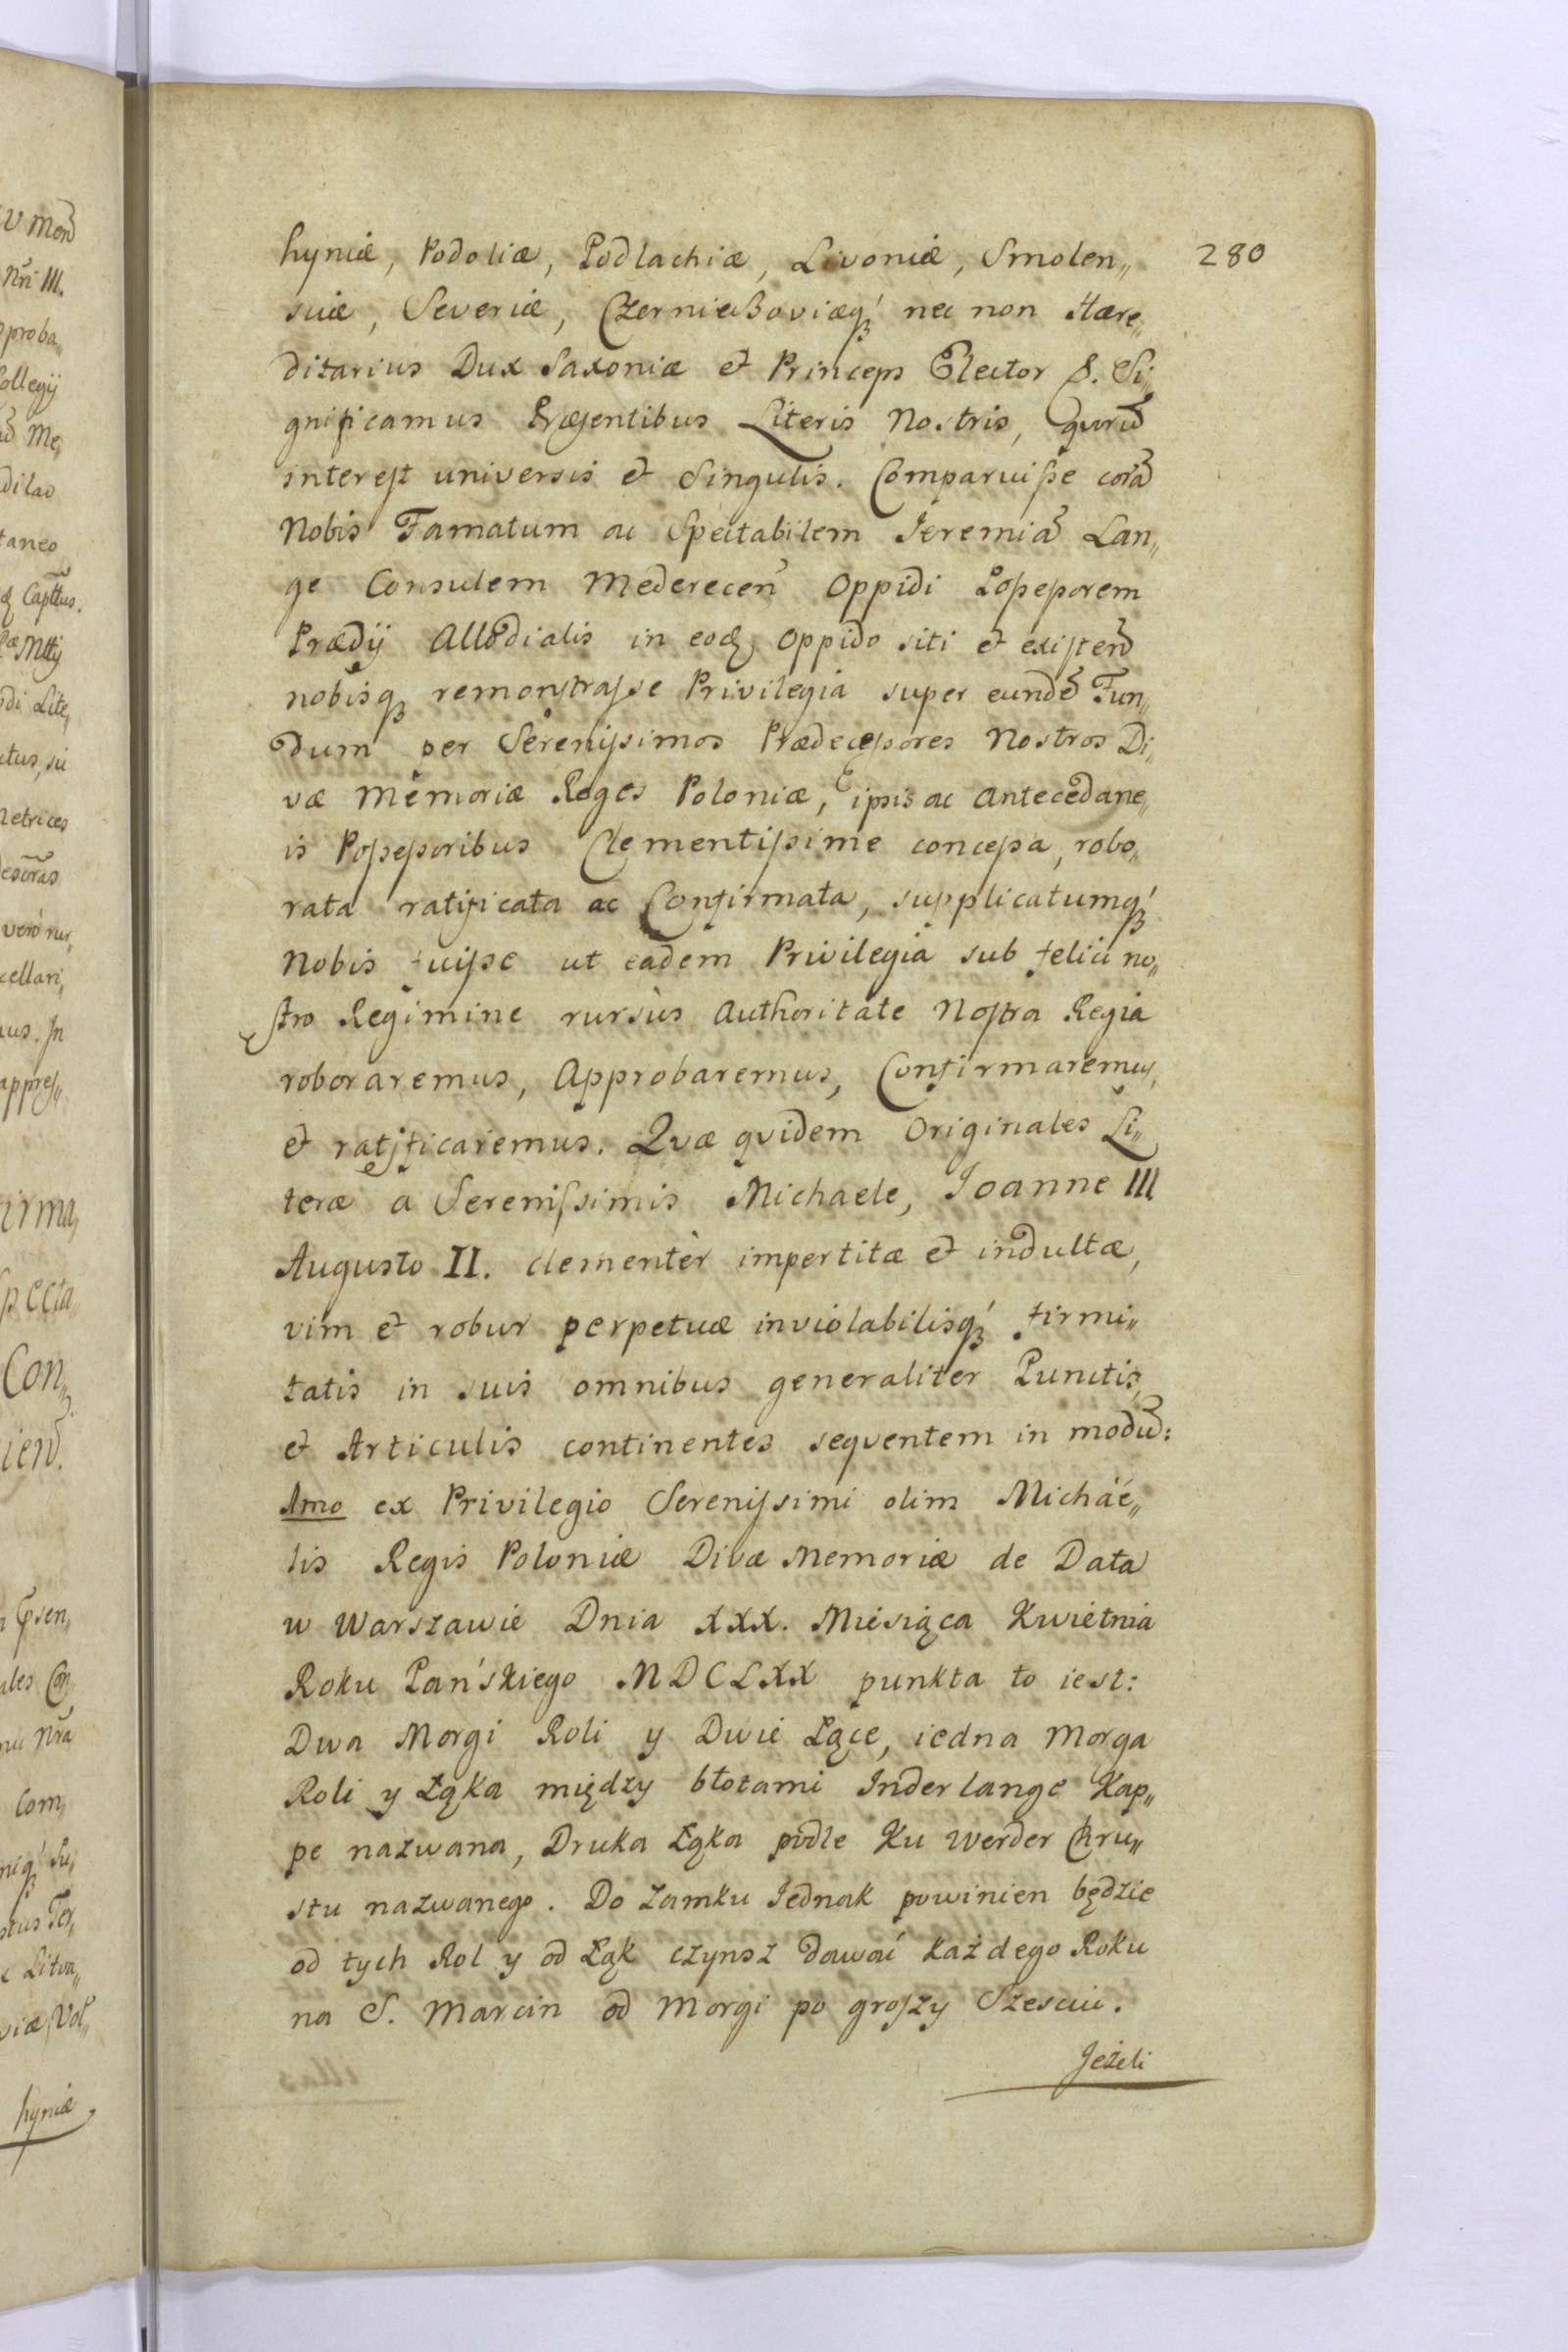 280
hyniæ, Podoliæ, Podlachiæ, Livoniæ, Smolen„
sciæ, Severiæ, Czernieḱoviæq́ꝫ nec non Hære„
ditarius Dux Saxoniæ et Princeps Elector &. Si„
gnificamus Præsentibus Literis Nostris, quorũ
interest universis et Singulis. Comparuiſse corã
Nobis Famatum ac Spectabilem Jeremiã Lan„
ge Consulem Mederecen̄ Oppidi Poſseſsorem
Prædÿ Allodialis in eodꝫ Oppido siti et existen̄
nobisqꝫ remonstraſse Privilegia super eundẽ Fun„
dum per Sereniſsimos Prædeceſsores Nostros Di„
væ Memoriæ Reges Poloniæ, ipsis ac Antecedane„
is Poſseſsoribus Clementiſsime conceſsa, robo„
rata ratificata ac Confirmata, supplicatumq́ꝫ
Nobis fuiſse ut eadem Privilegia sub felici no„
stro Regimine rursùs Authoritate Nostra Regia
roboraremus, Approbaremus, Confirmaremus,
et ratificaremus. Qvæ qvidem Originales Li„
teræ a Sereniſsimis Michaele, Joanne III
Augusto II. clementèr impertitæ et indultæ,
vim et robur perpetuæ inviolabilisq́ꝫ firmi„
tatis in suis omnibus generaliter Punctis,
et Articulis continentes seqventem in modũ:
Imo ex Privilegio Sereniſsimi olim Michaé„
lis Regis Poloniæ Divæ Memoriæ de Data
w Warszawie Dnia XXX. Miesiąca Kwietnia
Roku Pańskiego MDCLXX punkta to iest:
Dwa Morgi Roli y Dwie Łące, iedna Morga
Roli y Łąka między błotami Inder lange Kap„
pe nazwana, Druka Łąka podle Ku Werder Chru„
stu nazwanego. Do Zamku Jednak powinien będzie
od tych Rol y od Łąk czynsz dawać każdego Roku
na S. Marcin od Morgi po groſzy Szesciu.
Jeżeli